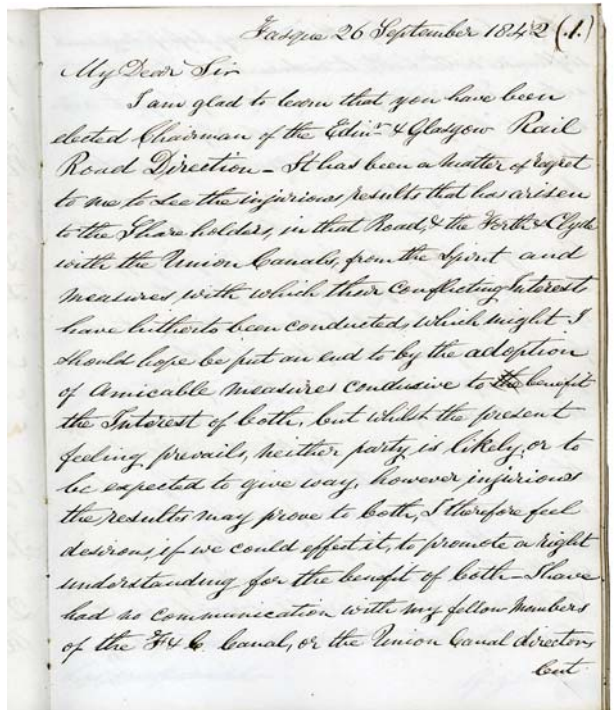 Fasque 26 September 1842 (.1.)
My Dear Sir
I am glad to learn that you have been
elected Chairman of the Edinr & Glasgow Rail
Road Direction - It has been a matter of regret
to me to see the injurious results that has arisen
to the Share holders, in that Road, & the Forth & Clyde
with the Union Canals, from the Spirit and
measures with which their conflicting Interests
have hitherto been conducted, which might I
should hope be put an end to by the adoption
of amicable measures condusive to the benefit
the Interest of both, but whilst the present
feeling prevails, neither party is likely, or to
be expected to give way, however injurious
the results may prove to both, I therefore feel
desirous, if we could effect it, to promote a right
understanding for the benefit of both - I have
had no communication with my fellow Members
of the F & C. Canal, or the Union Canal directors
but